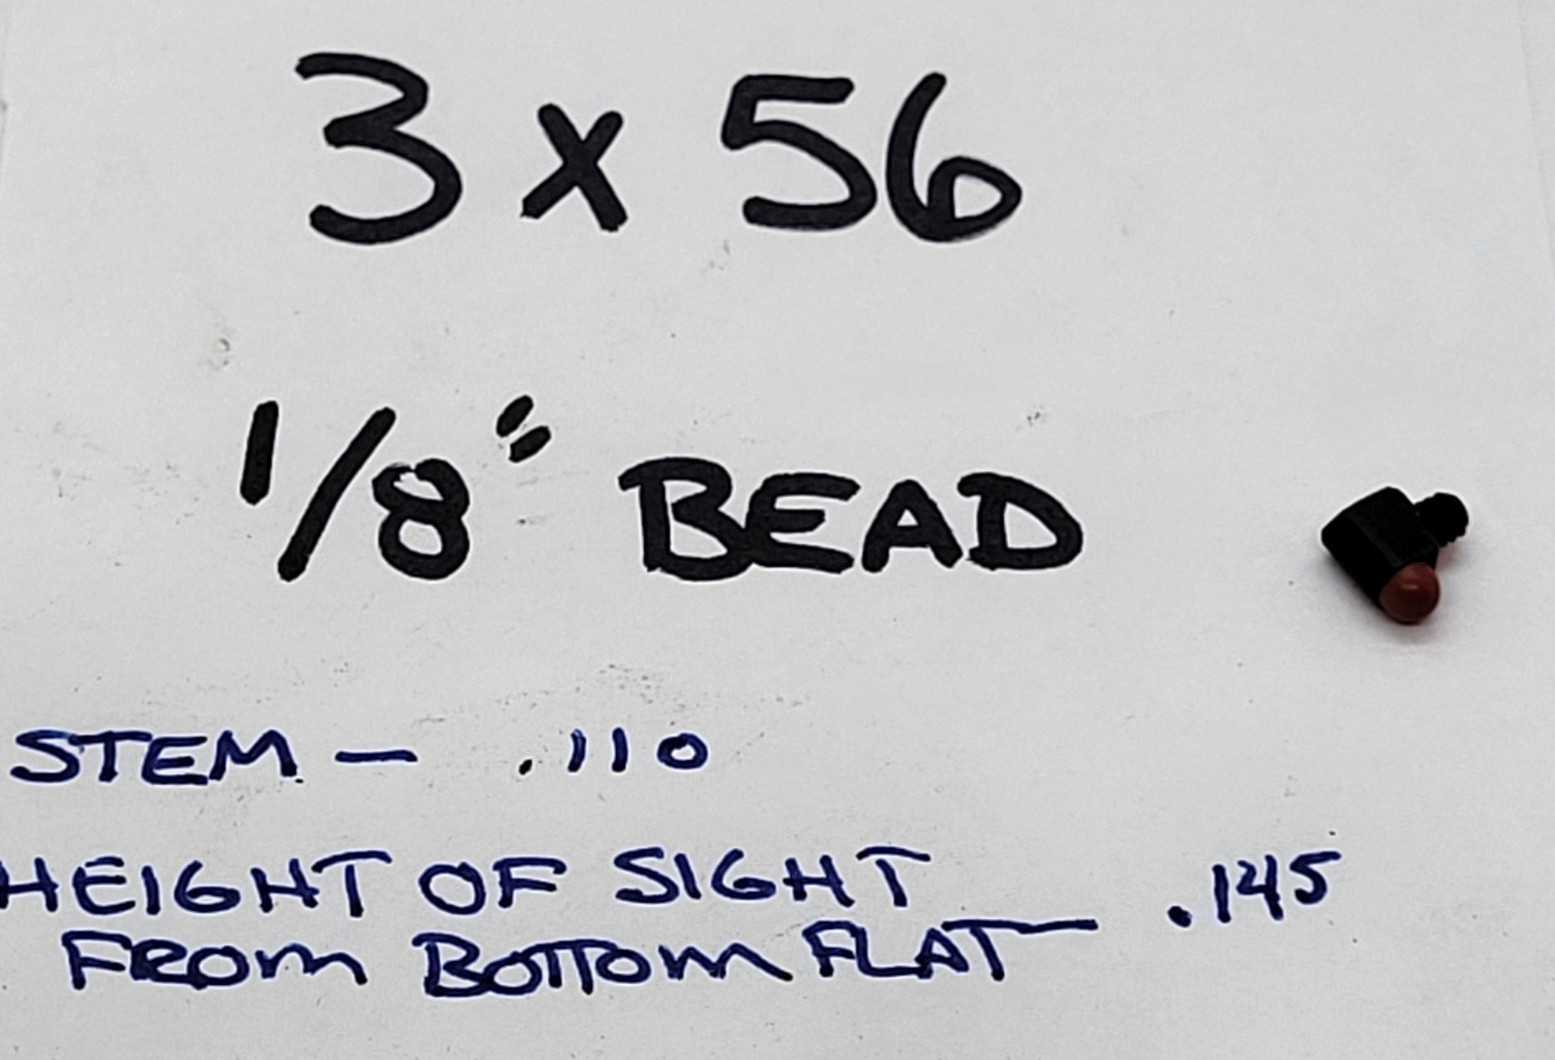 3 x 56
1/8" BEAD
STEM — .110
HEIGHT OF SIGHT
FROM BOTTOM FLAT — .145